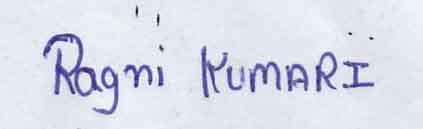 Ragni KUMARI